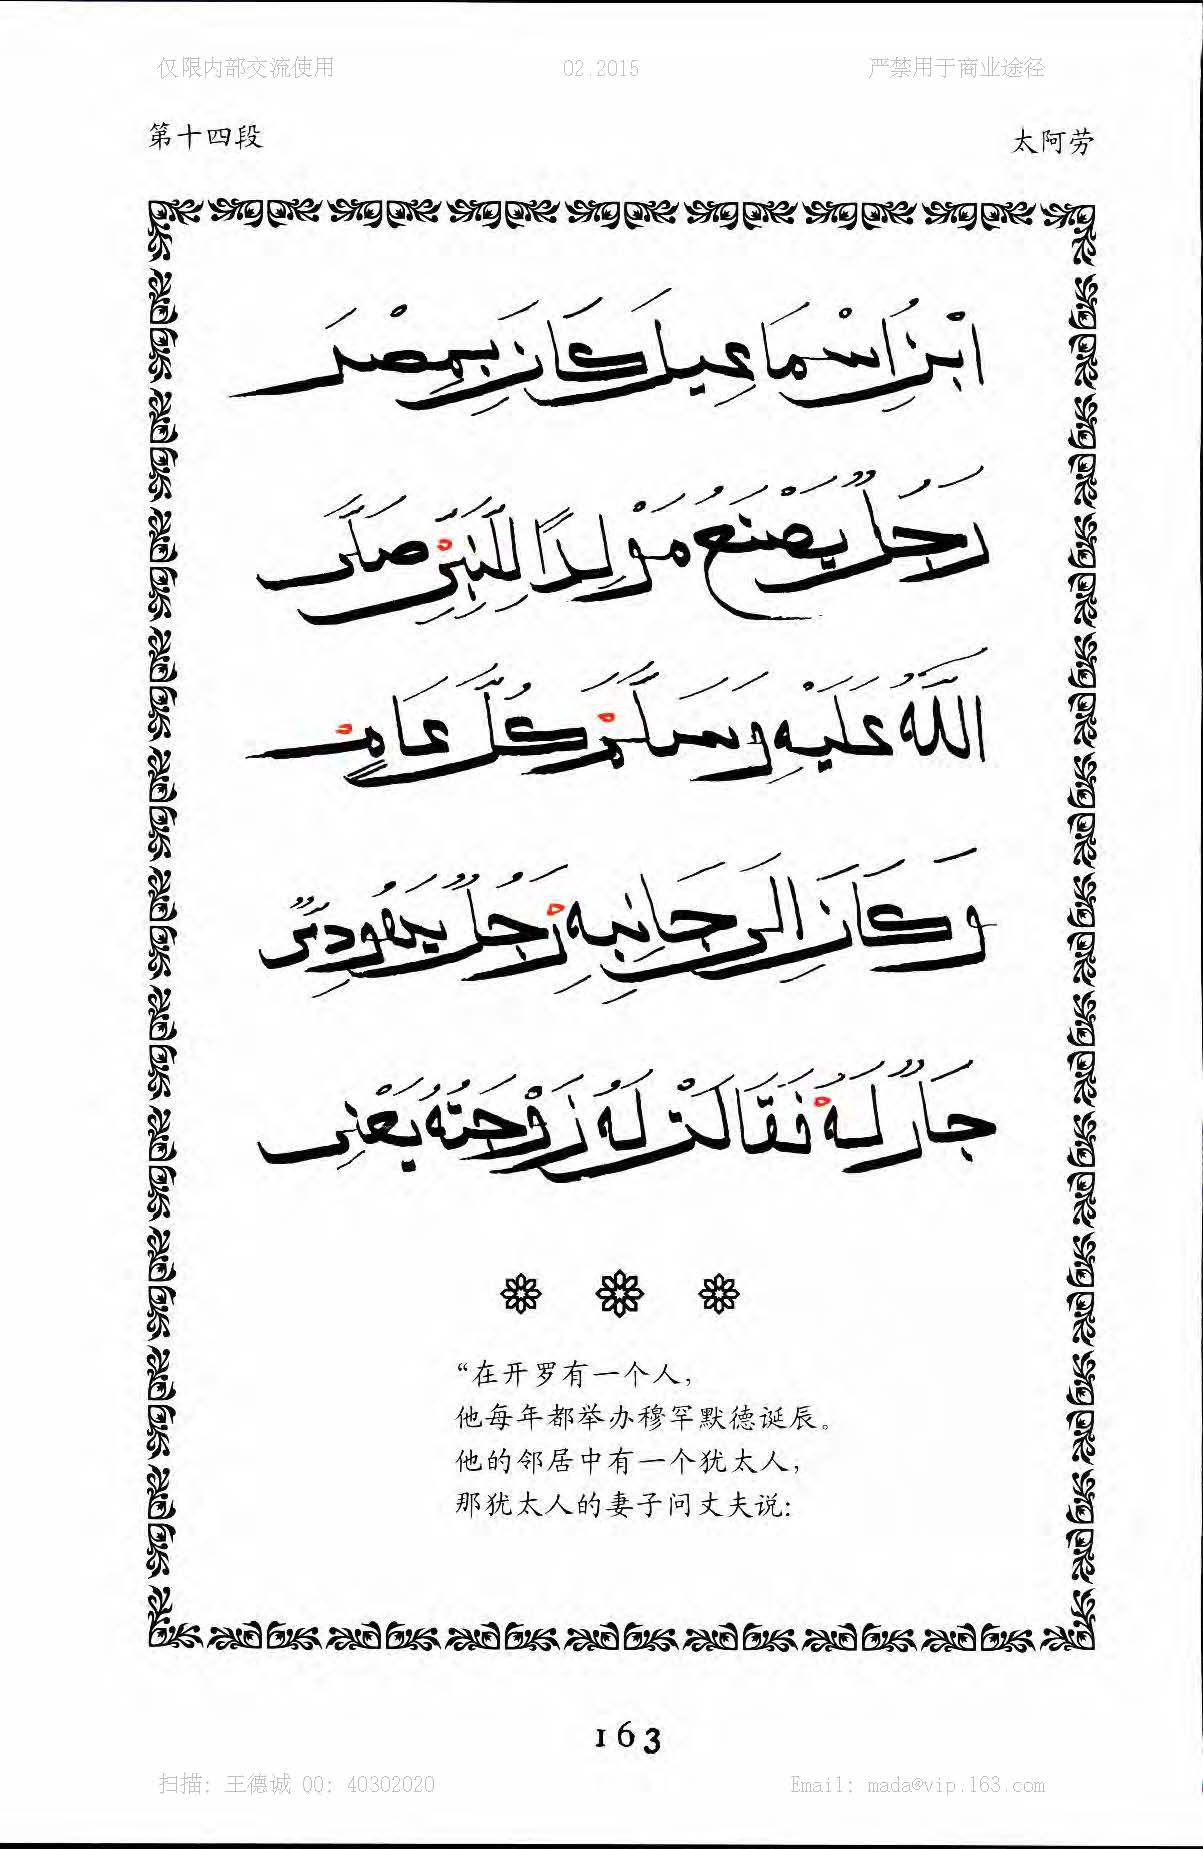 仅限内部交流使用 02.2015 严禁用于商业途径
第十四段 太阿劳
ابْنُ اسْمَاعِيلَ كَانَ بِمِصْرَ
رَجُلٌ يَصْنَعُ مَوْلِدًا لِلنَّبِيِّ صَلَّى
اللَّهُ عَلَيْهِ وَسَلَّمَ كُلَّ عَامٍ
وَكَانَ اِلَى جَانِبِهِ رَجُلٌ يَهُودِىٌّ
جَارٌ لَهُ فَقَالَتْ لَهُ زَوْجَتُهُ يَعْنِى
“在开罗有一个人，
他每年都举办穆罕默德诞辰。
他的邻居中有一个犹太人，
那犹太人的妻子问丈夫说：
163
扫描：王德诚 QQ：40302020 Email：mada@vip.163.com